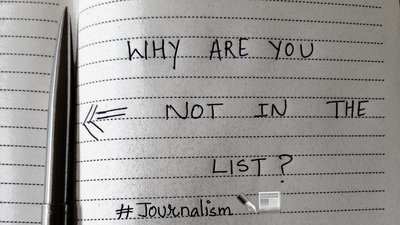 WHY ARE YOU
NOT IN THE
LIST?
#Journalism